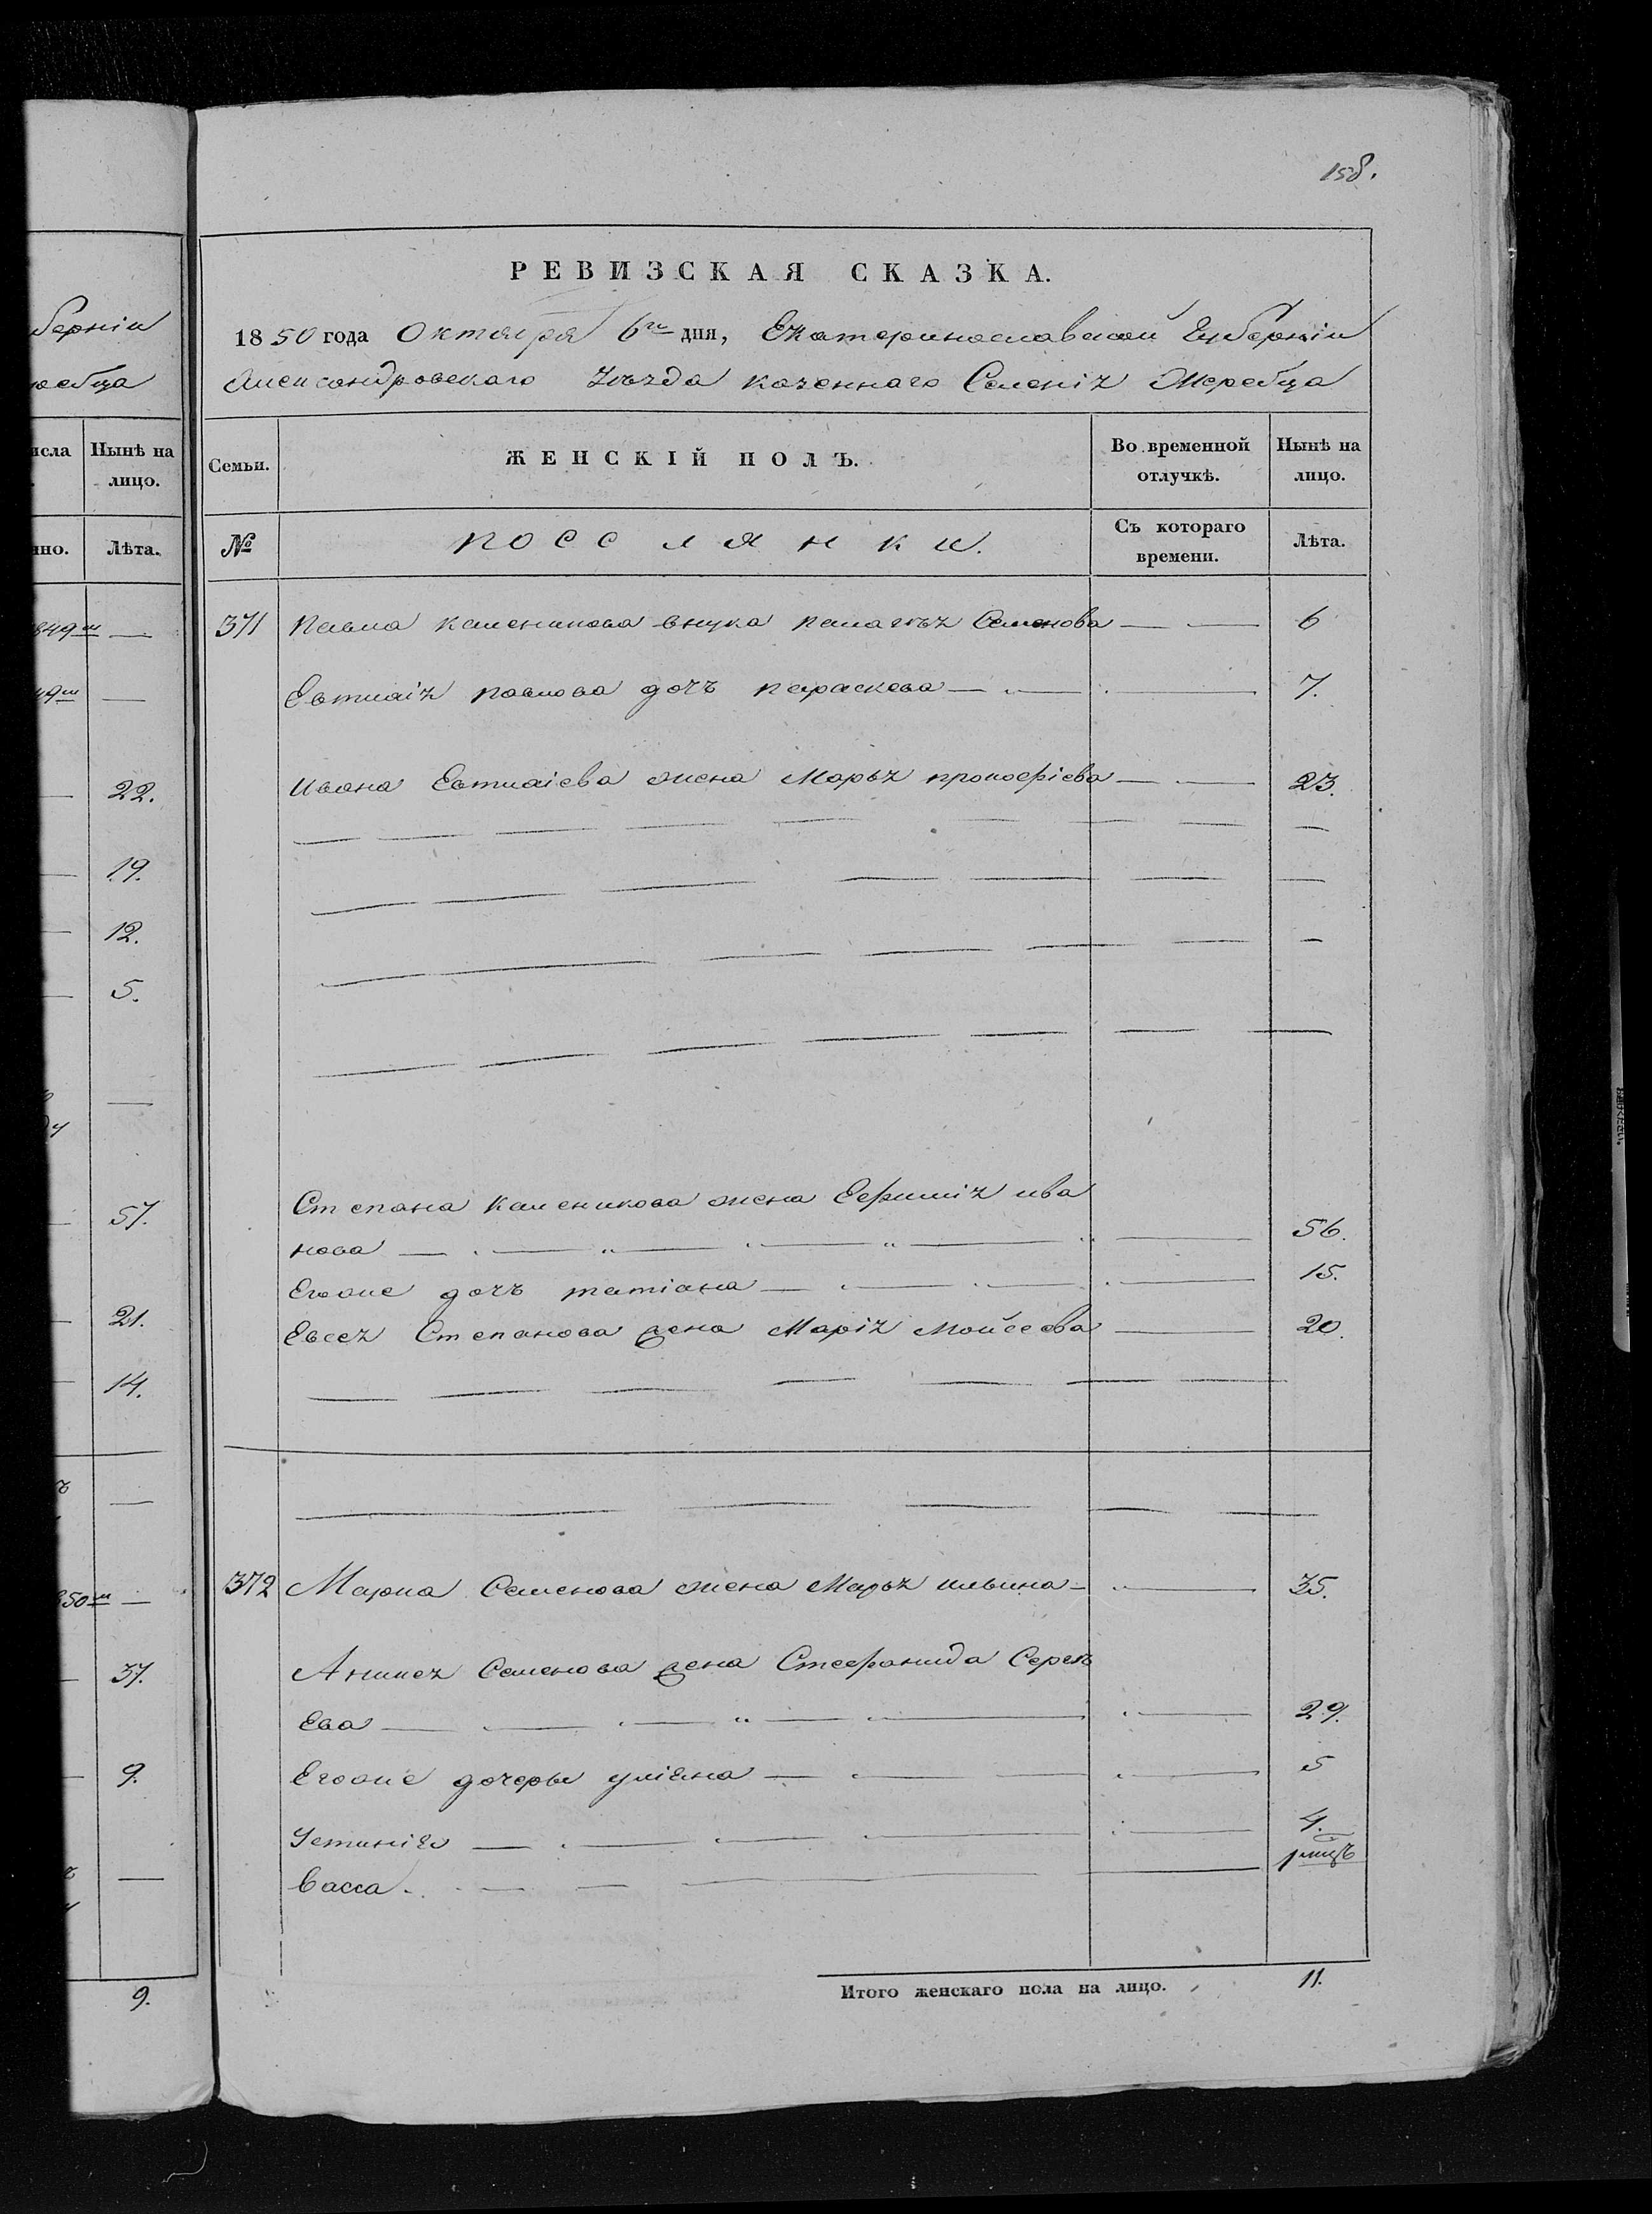 158.
РЕВИЗСКАЯ СКАЗКА.
1850 года Октября 6го дня, Екатеринославской Губерніи
Александровскаго Уѣзда казеннаго Селенія Жеребца
Семьи.
ЖЕНСКІЙ ПОЛЪ.
Во временной отлучкѣ.
Нынѣ на лицо.
№
поселянки.
Съ котораго времени.
Лѣта.
371 Павла Каленикова внука Пелагѣя Семенова — 6
Евтиміи павлова дочь параскева — 7.
Ивана Евтиміева жена Марья прокофіева — 23.
Степана Каленикова жена Ефимія ива
нова — 56.
Егоже дочь татіана — 15.
Евсея Степанова жена Марія Мойсеева — 20.
372 Марка Семенова жена Марья ильина — 35.
Аникея Семенова жена Стефанида Сергѣ
ева — 29.
Егоже дочеры уліяна — 5
Устинія — 4.
Васса — 1 мцъ
Итого женскаго пола на лицо. 11.
берніи
ребца
исла
Нынѣ на лицо.
нно.
Лѣта.
849го —
49го —
— 22.
— 19.
— 12.
— 5.
—
— 57.
— 21.
— 14.
—
850го —
— 37.
— 9.
—
9.